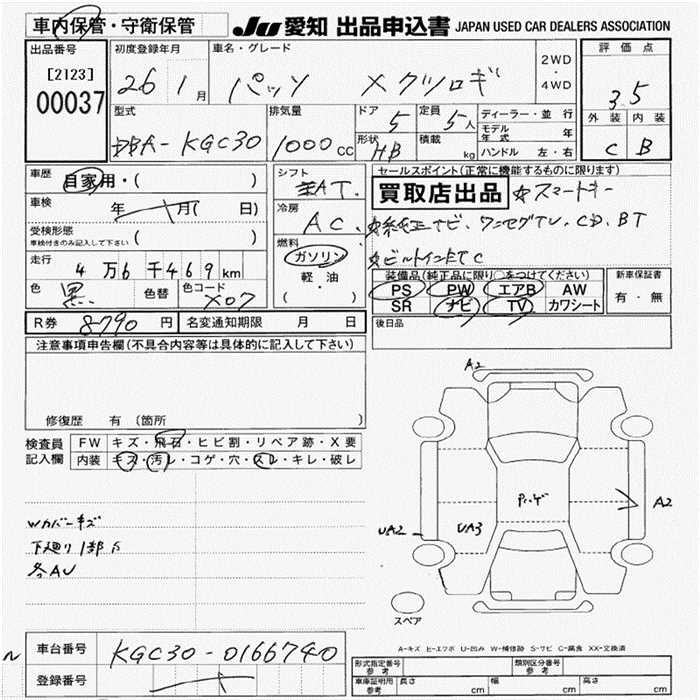 車内保管・守衛保管
JU 愛知 出品申込書 JAPAN USED CAR DEALERS ASSOCIATION
出品番号
[2123]
00037
初度登録年月
26 1月
車名・グレード
パッソ
2WD
・
4WD
評価点
3.5
外装 内装
C B
型式
DBA-KGC30
排気量
1000cc
ドア
5
形状
HB
定員
5人
積載
kg
ディーラー・並行
モデル年式 年
ハンドル 左・右
車歴
自家用・( )
車検
年 月( 日)
受検形態
車検付きのみ記入して下さい ( )
走行
4万6千469km
色
黒
色替
色コード
X07
シフト
AT
冷房
AC
燃料
ガソリン
軽・油
( )
セールスポイント(正常に機能するものに限ります)
買取店出品
☆スマートキー
☆純正ナビ、ワンセグTV、CD、BT
☆ビルトインETC
装備品(純正品に限り○をつけてください)
PS PW エアB AW
SR ナビ TV カワシート
新車保証書
有・無
R券 8790円
名変通知期限 月 日
後日品
注意事項申告欄(不具合内容等は具体的に記入して下さい)
修復歴 有 (箇所 )
検査員記入欄
FW キズ・飛石・ヒビ割・リペア跡・X要
内装 キズ・汚レ・コゲ・穴・スレ・キレ・破レ
Wカバーキズ
下廻り1部S
各AU
A2
UA2
UA3
A2
スペア
A-キズ E-エクボ U-凹み W-補修跡 S-サビ C-腐食 XX-交換済
車台番号
KGC30-0166740
登録番号
形式指定番号
参考
類別区分番号
参考
車庫証明用
参考
長さ cm
幅 cm
高さ cm